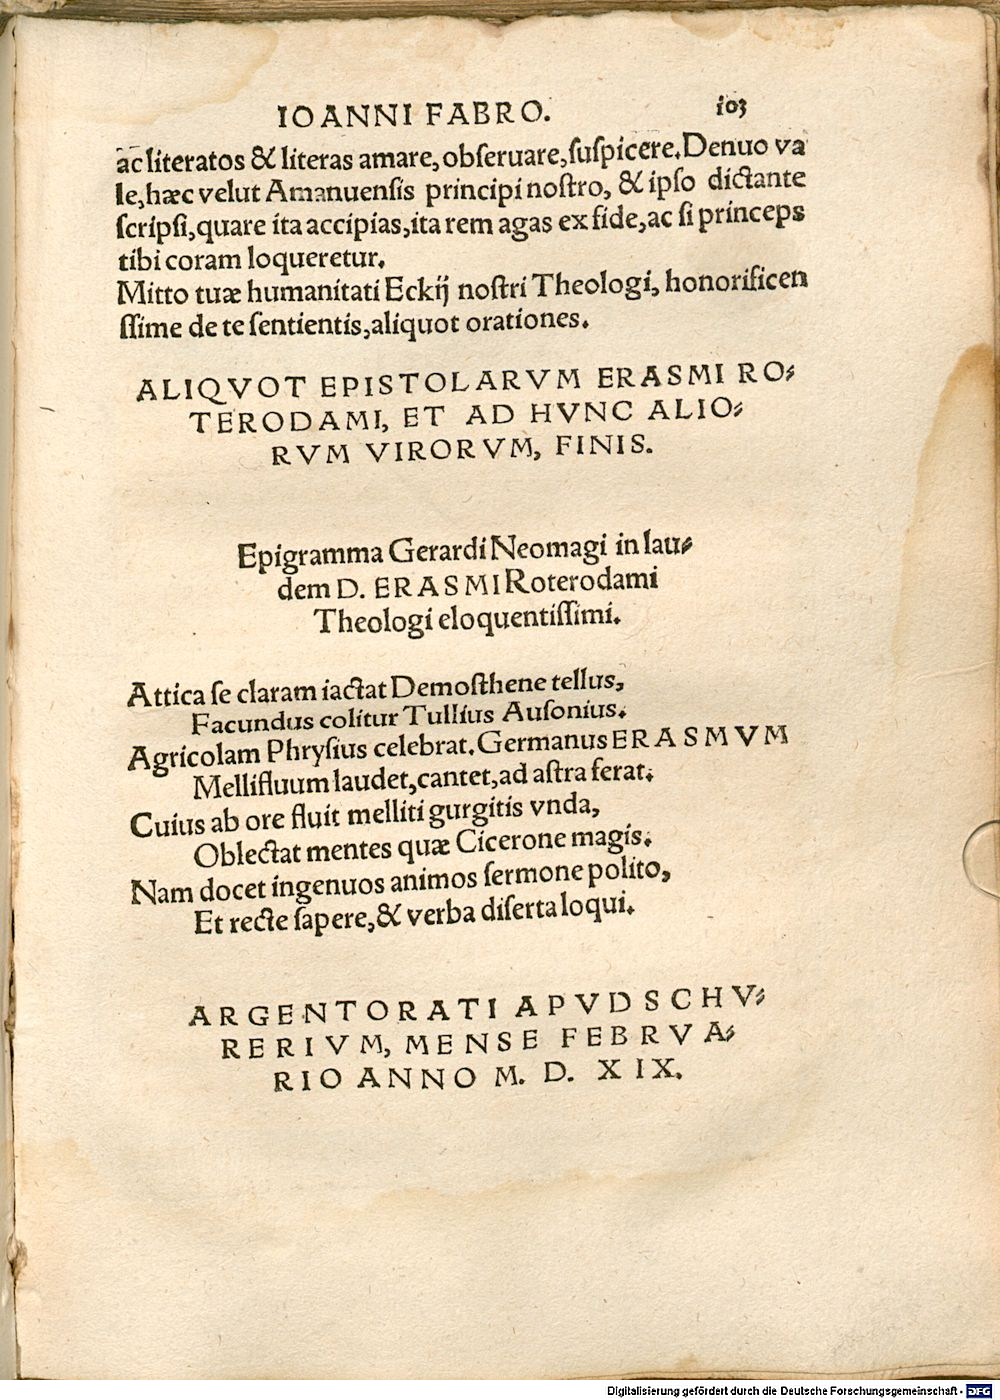 IOANNI FABRO. 103
ac literatos & literas amare, obſeruare, ſuſpicere. Denuo va
le, hæc velut Amanuenſis principi noſtro, & ipſo dictante
ſcripſi, quare ita accipias, ita rem agas ex fide, ac ſi princeps
tibi coram loqueretur.
Mitto tuæ humanitati Eckij noſtri Theologi, honorificen
ſſime de te ſentientis, aliquot orationes.
ALIQVOT EPISTOLARVM ERASMI RO⸗
TERODAMI, ET AD HVNC ALIO⸗
RVM VIRORVM, FINIS.
Epigramma Gerardi Neomagi in lau⸗
dem D. ERASMI Roterodami
Theologi eloquentiſſimi.
Attica ſe claram iactat Demoſthene tellus,
Facundus colitur Tullius Auſonius.
Agricolam Phryſius celebrat. Germanus ERASMVM
Mellifluum laudet, cantet, ad aſtra ferat.
Cuius ab ore fluit melliti gurgitis vnda,
Oblectat mentes quæ Cicerone magis.
Nam docet ingenuos animos ſermone polito,
Et recte ſapere, & verba diſerta loqui.
ARGENTORATI APVD SCHV⸗
RERIVM, MENSE FEBRVA⸗
RIO ANNO M. D. XIX.
Digitalisierung gefördert durch die Deutsche Forschungsgemeinschaft - DFG